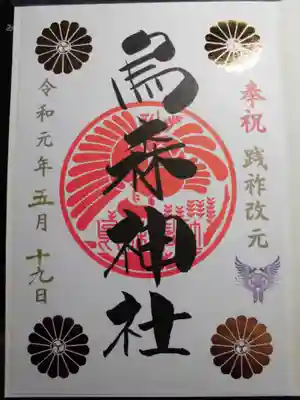 奉祝 践祚改元
烏森神社
令和元年五月十九日